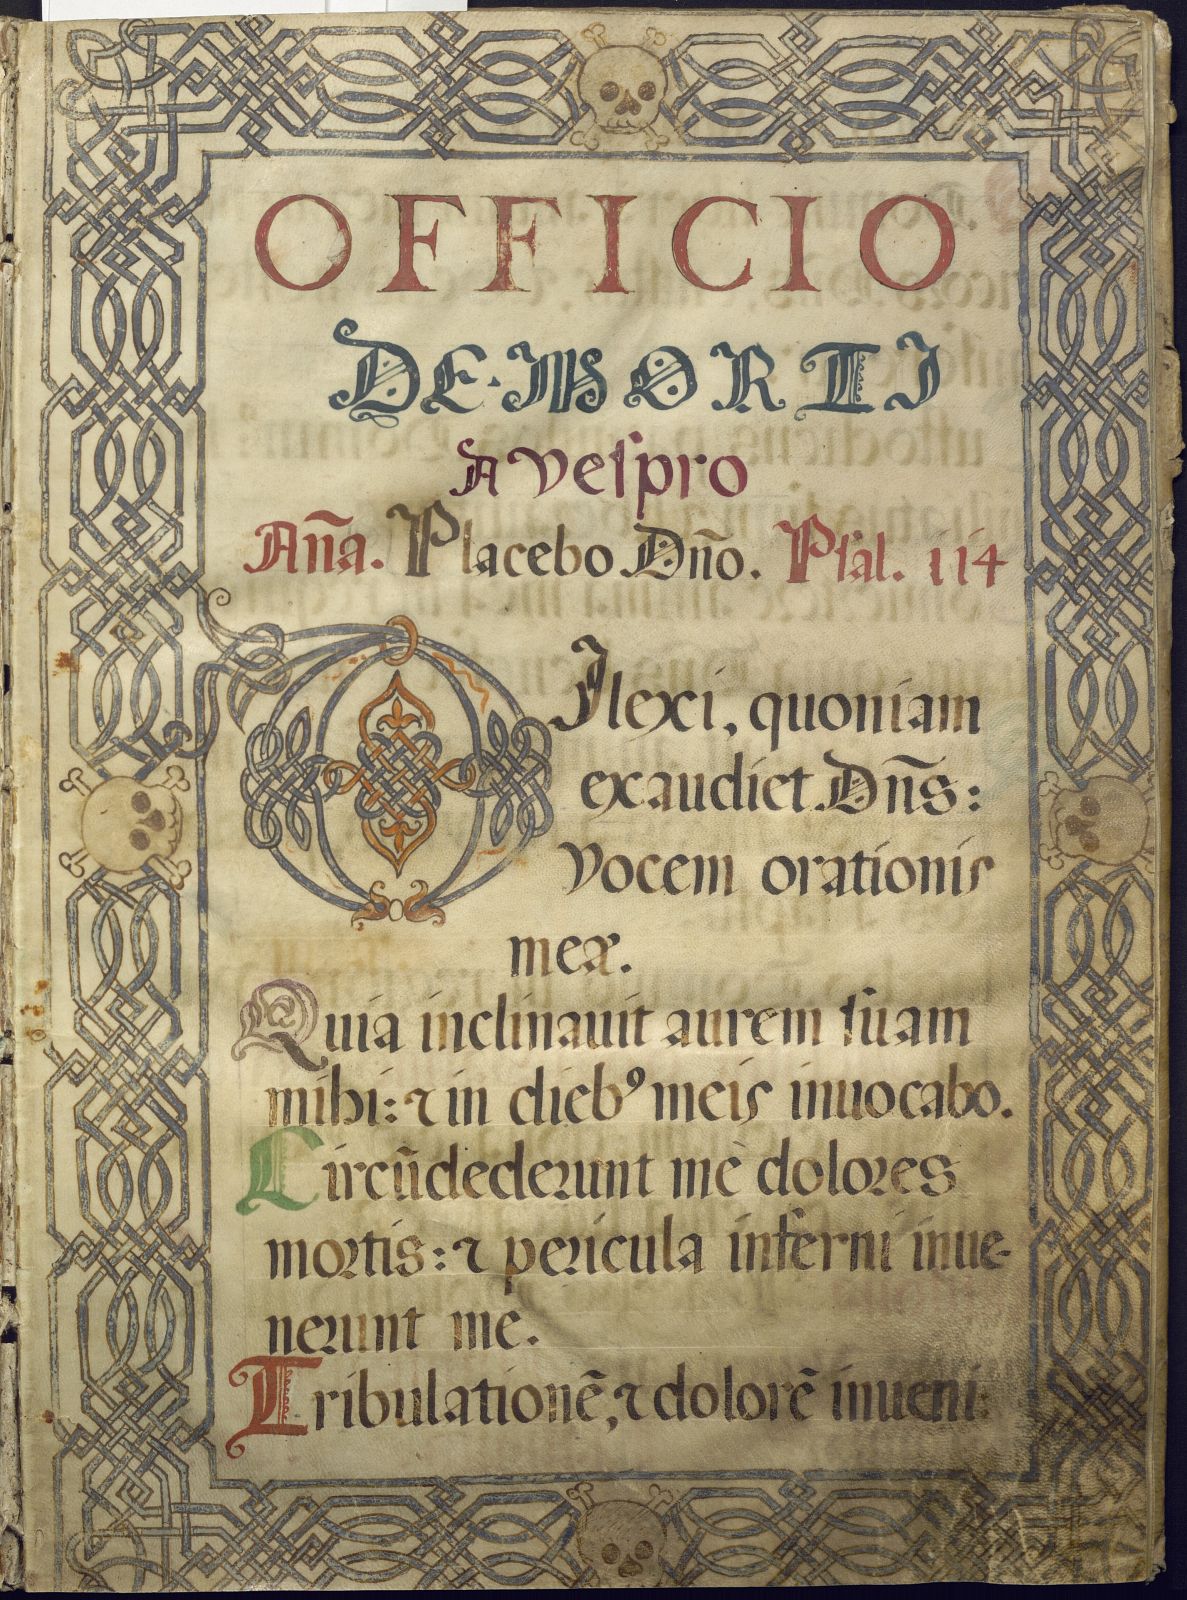 OFFICIO
DE· MORTI
A Veſpro
Aña. Placebo Dño. Pſal. 114
DIlexi, quoniam
exaudiet Dñs:
vocem orationis
meæ.
Quia inclinauit aurem ſuam
mihi: ⁊ in dieb⁹ meis inuocabo.
Circũdederunt me dolores
mortis: ⁊ pericula inferni inue-
nerunt me.
Tribulationẽ, ⁊ dolorẽ inueni: